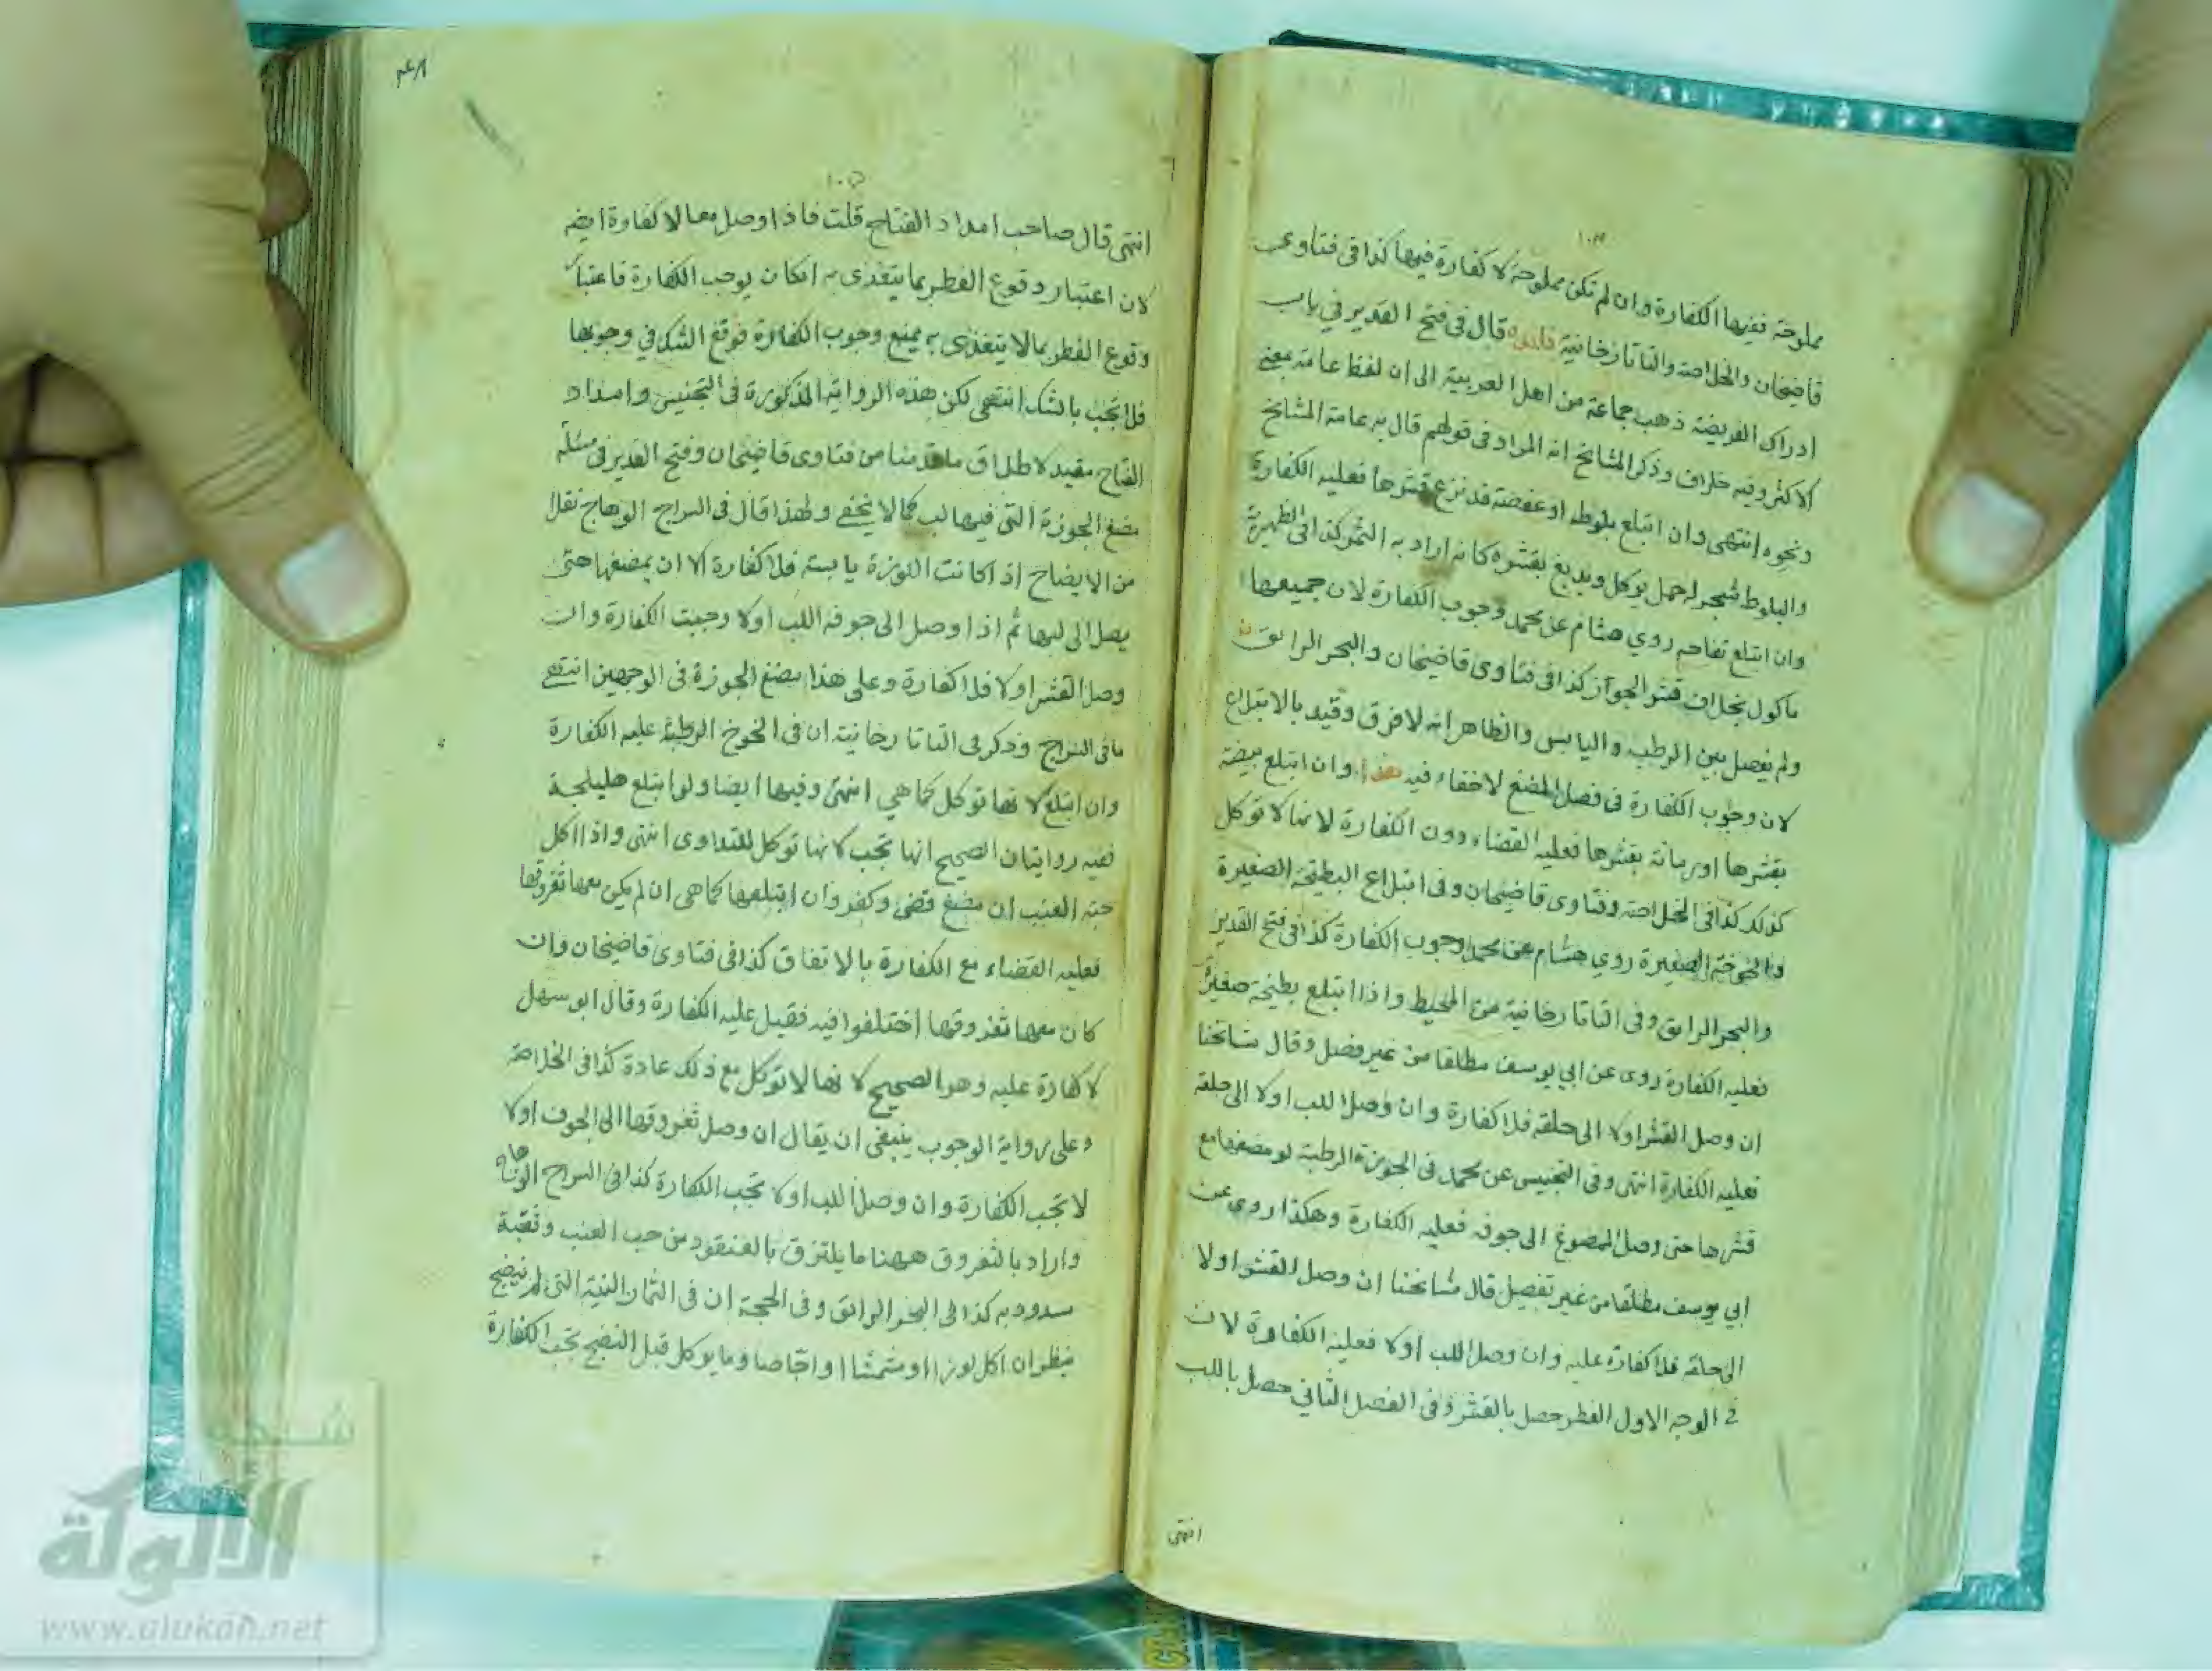 مملوحة ففيها الكفارة وان لم تكن مملوحة لا كفارة فيها كذا في فتاوى
قاضيخان والخلاصة والتاتارخانية فايدة قال في فتح القدير في باب
ادراك الفريضة ذهب جماعة من اهل العربية الى ان لفظ عامة بمعنى
الاكثر وفيه خلاف وذكر المشايخ انه المراد في قولهم قال به عامة المشايخ
ونحوه انتهى وان ابتلع بلوطه او عفصة قد نزع قشرها فعليه الكفارة
والبلوط شجر له حمل يوكل ويدبغ بقشره كانه اراد به الثمر كذا في الظهيرية
وان ابتلع تفاحه روي هشام عن محمد وجوب الكفارة لان جميعها
ماكول بخلاف قشر الجواز كذا في فتاوى قاضيخان والبحر الرائق
ولم يفصل بين الرطب واليابس والظاهر انه لا فرق وقيد بالابتلاع
لان وجوب الكفارة في فصل المضغ لا خفاء فيه وان ابتلع بيضة
بقشرها او رمانة بقشرها فعليه القضاء دون الكفارة لانها لا توكل
كذلك كذا في الخلاصة وفتاوى قاضيخان وفي ابتلاع البطيخة الصغيرة
والخوخة الصغيرة روي هشام عن محمد وجوب الكفارة كذا في فتح القدير
والبحر الرائق وفي التاتارخانية من المحيط واذا ابتلع بطيخة صغيرة
فعليه الكفارة روى عن ابي يوسف مطلقا من غير فصل وقال مشايخنا
ان وصل القشر اولا الى حلقه فلا كفارة وان وصل اللب اولا الى حلقه
فعليه الكفارة انتهى وفي التجنيس عن محمد في الجوزة الرطبة لو مضغها مع
قشرها حتى وصل الممضوغ الى جوفه فعليه الكفارة وهكذا روى عن
ابي يوسف مطلقا من غير تفصيل قال مشايخنا ان وصل القشر اولا
الى حلقه فلا كفارة عليه وان وصل اللب اولا فعليه الكفارة لان
في الوجه الاول الفطر حصل بالقشر وفي الفصل الثاني حصل باللب
انتهى
انتهى قال صاحب امداد الفتاح قلت فاذا وصل معا لا كفارة ايضا
لان اعتبار وقوع الفطر بما يتغذى به ان كان يوجب الكفارة فاعتبار
وقوع الفطر بما لا يتغذى به يمنع وجوب الكفارة فوقع الشك في وجوبها
فلا تجب بالشك انتهى لكن هذه الرواية المذكورة في التجنيس وامداد
الفتاح مقيد لاطلاق ما قدمنا من فتاوى قاضيخان وفتح القدير في مسئلة
مضغ الجوزة التي فيها لب كما لا يخفى ولهذا قال في السراج الوهاج نقلا
من الايضاح اذا كانت اللوزة يابسة فلا كفارة الا ان يمضغها حتى
يصل الى لبها ثم اذا وصل الى جوفه اللب اولا وجبت الكفارة وان
وصل القشر اولا فلا كفارة وعلى هذا مضغ الجوزة في الوجهين انتهى
ما في السراج وذكر في التاتارخانية ان في الخوخ الرطبة عليه الكفارة
وان ابتلع لانها توكل كما هي انتهى وفيها ايضا ولو ابتلع هليلجة
ففيه روايتان الصحيح انها تجب لانها توكل للتداوى انتهى واذا اكل
حبة العنب ان مضغ قضى وكفر وان ابتلعها كما هي ان لم يكن معها ثفروقها
فعليه القضاء مع الكفارة بالاتفاق كذا في فتاوى قاضيخان وان
كان معها ثفروقها اختلفوا فيه فقيل عليه الكفارة وقال ابو سهل
لا كفارة عليه وهو الصحيح لانها لا توكل مع ذلك عادة كذا في الخلاصة
وعلى رواية الوجوب ينبغي ان يقال ان وصل ثفروقها الى الجوف اولا
لا تجب الكفارة وان وصل اللب اولا تجب الكفارة كذا في السراج الوهاج
واراد بالثفروق ههنا ما يلتزق بالعنقود من حب العنب وثقبة
مسدودة به كذا في البحر الرائق وفي الحجة ان في الثمار النية التي لم تنضج
ينظر ان اكل لوزا او مشمشا او اجاصا وما يوكل قبل النضج تجب الكفارة
شبكة
الألوكة
www.alukah.net